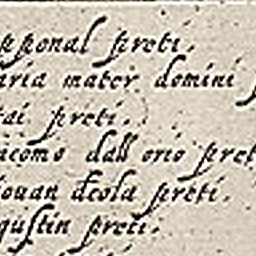 pponal preti.
aria mater domini
tai preti.
icomo dall orio pret
iouan decola preti.
gustin preti.